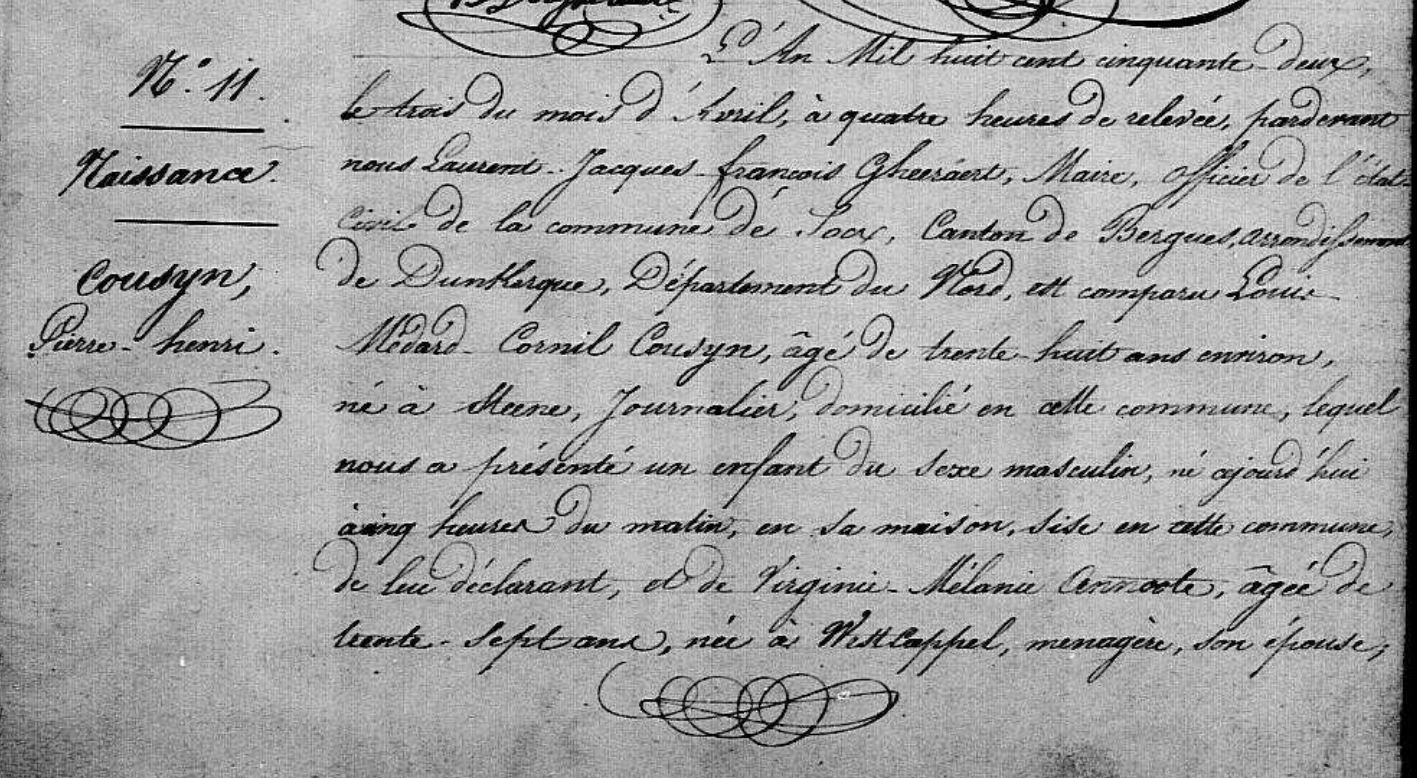 N.o 11.
Naissance.
Cousyn,
Pierre-henri.
L'An Mil huit cent cinquante-deux,
le trois du mois d'Avril, à quatre heures de relevée, pardevant
nous Laurent-Jacques-françois Gheeräert, Maire, officier de l'état-
Civil de la commune de Socx, Canton de Bergues, arrondissement
de Dunkerque, Département du Nord, est comparu Louis-
Médard-Cornil Cousyn, âgé de trente-huit ans environ,
né à Steene, Journalier, domicilié en cette commune, lequel
nous a présenté un enfant du sexe masculin, né ajourd'hui
à cinq heures du matin, en sa maison, sise en cette commune,
de lui déclarant, et de Virginie-Mélanie Annoote, âgée de
trente-sept ans, née à WestCappel, menagère, son épouse,